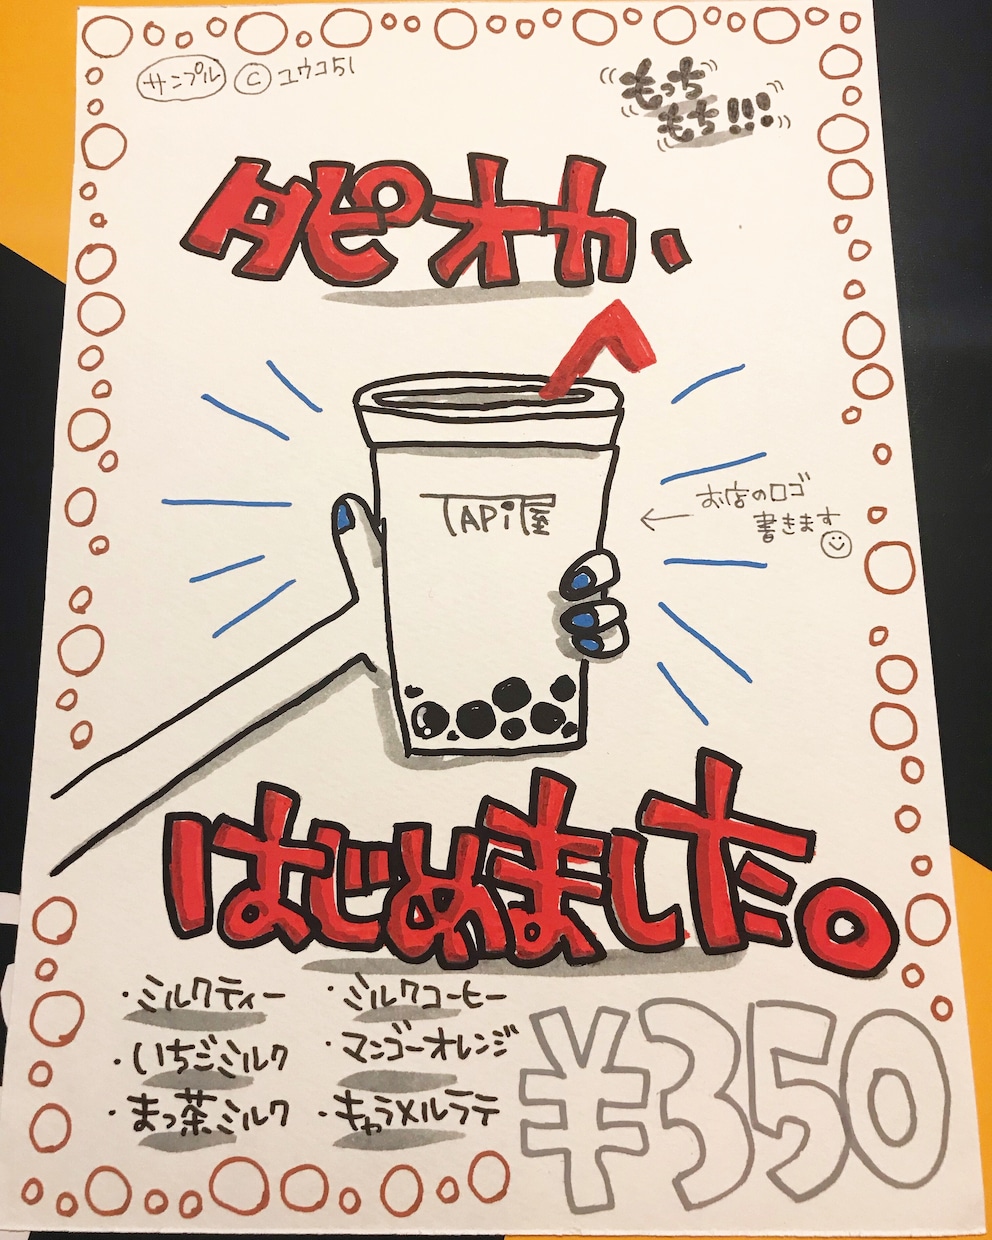 サンプル © ユウコ51
もっち
もち!!!
タピオカ、
TAPi屋
お店のロゴ
書きます
はじめました。
・ミルクティー
・ミルクコーヒー
・いちごミルク
・マンゴーオレンジ
・まっ茶ミルク
・キャラメルラテ
¥350